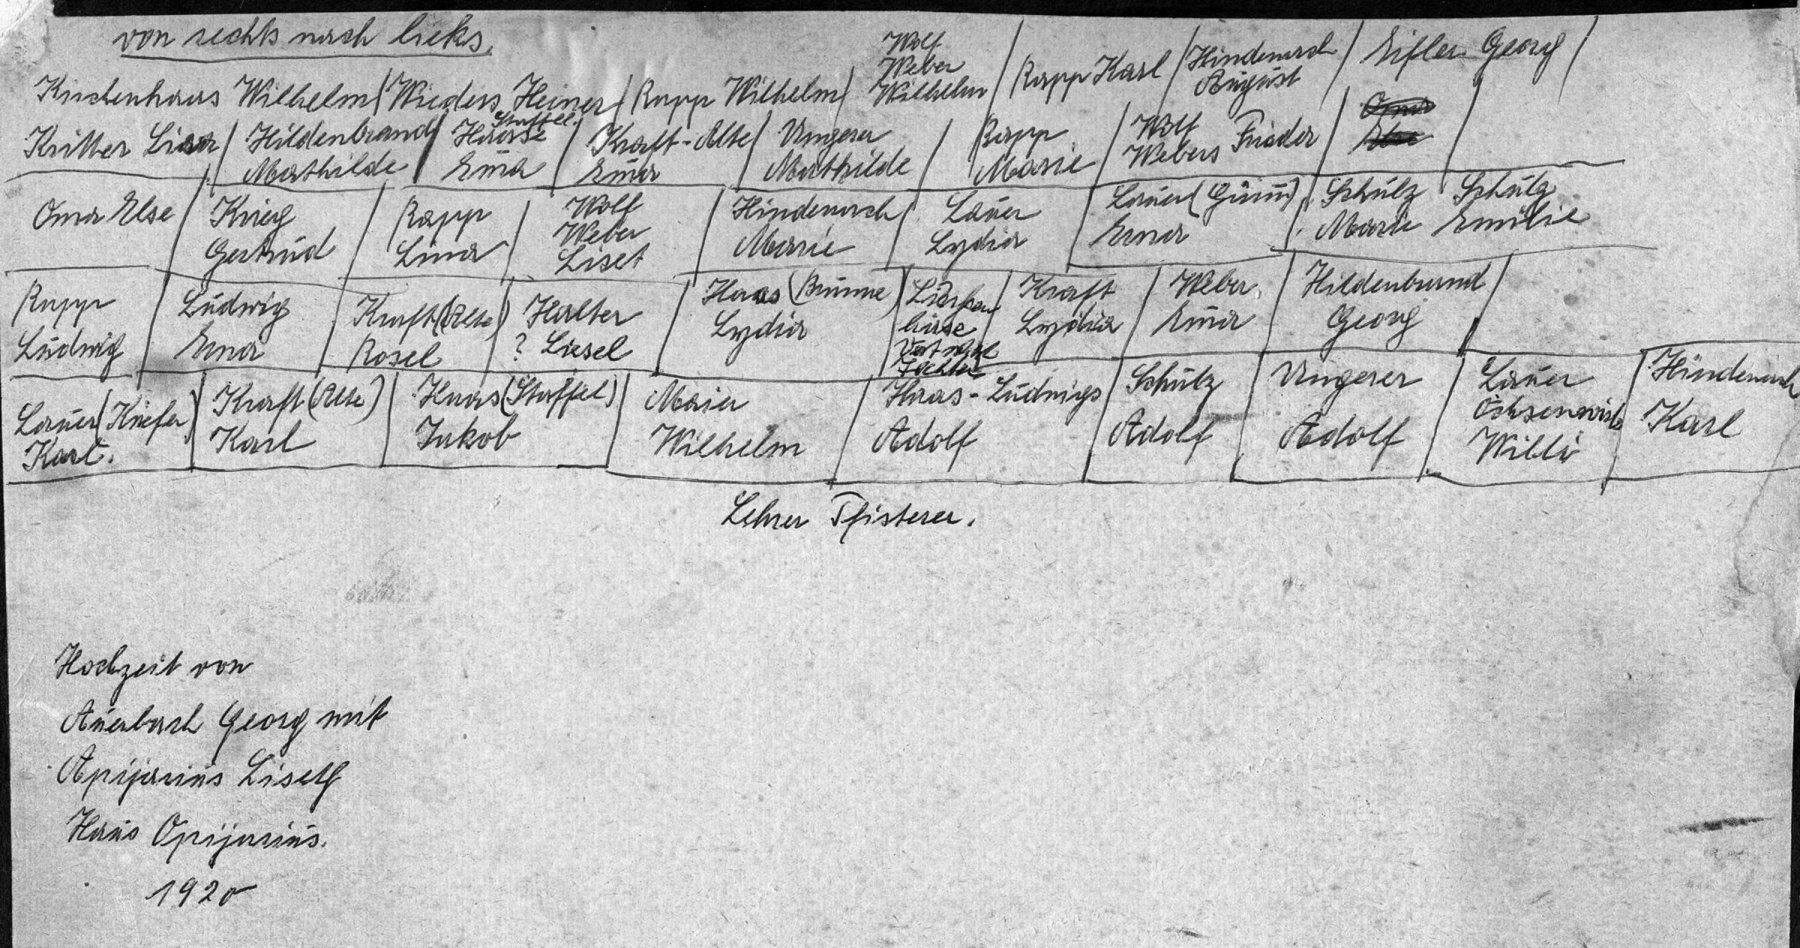 von rechts nach links.
Kirchenhaas Wilhelm / Wieders Heiner / Rapp Wilhelm / Wolf Weber Wilhelm / Rapp Karl / Hindenach August / Eifler Georg /
Kritter Lina / Hildenbrand Mathilde / Haas Staffel Ema / Kraft-Alte Ema / Ungerer Mathilde / Rapp Marie / Wolf Webers Frieder / Oma Else /
Oma Else / Krieg Gertrud / Rapp Lina / Wolf Weber Liset / Hindenach Marie / Lauer Lydia / Lauer (Grün) Ema / Schulz Marie Schulz Emilie
Rapp Ludwig / Ludwig Ema / Kraft (Alte) Rosel / Halter ? Liesel / Haas (Brunne) Lydia / Tochter / Kraft Lydia / Weber Ema / Hildenbrand Georg /
Lauer (Kiefer) Karl. / Kraft (Alte) Karl / Haas (Staffel) Jakob / Maier Wilhelm / Haas-Ludwigs Adolf / Schulz Adolf / Ungerer Adolf / Lauer Ochsenwirts Willi / Hindenach Karl
Lehrer Pfisterer.
Hochzeit von
Auerbach Georg mit
Apijarius Liseth
Haus Opijarius.
1920